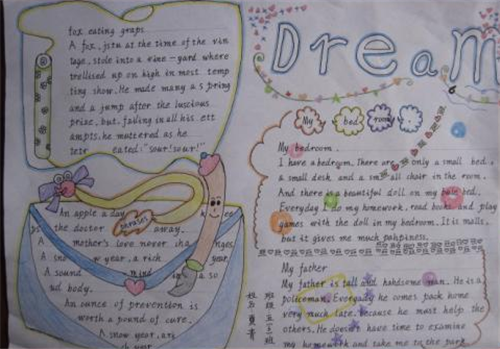 fox eating graps
A fox, jstu at the time of the vin
tage, stole into a vine-yard where
trellised up on high in most temp
ting show. He made many a spring
and a jump after the luscious
prize. but, failing in all his ett
ampts, he muttered as he
retr eated: "sour! sour!"
phrases
An apple a day
ps the doctor away.
A mother's love never cha nges.
A sno w year, a rich year
A sound mind in a so
ud body.
An ounce of prevention is
worth a pound of cure.
A snow year, a ri
ch year
Dream
My bed room
My bedroom.
I have a bedroom. There are only a small bed,
a small desk and a small chair in the room.
And there is a beautiful doll on my bed.
Everyday I do my homework, read books and play
games with the doll in my bedroom. It is malls.
but it gives me much pahpiness.
My father
My father is tall and handsome man. He is a
policeman. Everyday he comes back home
very much late. because he must help the
others. He doesn't have time to examine
my homework and take me to the park.